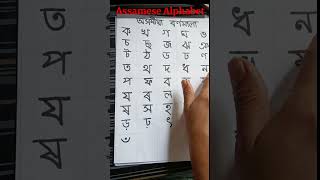 Assamese Alphabet
অসমীয়া বৰ্ণমালা
ক খ গ ঘ ঙ
চ ছ জ ঝ ঞ
ট ঠ ড ঢ ণ
ত থ দ ধ ন
প ফ ব
য ৰ ল
ষ স হ
ড় ঢ় ৎ